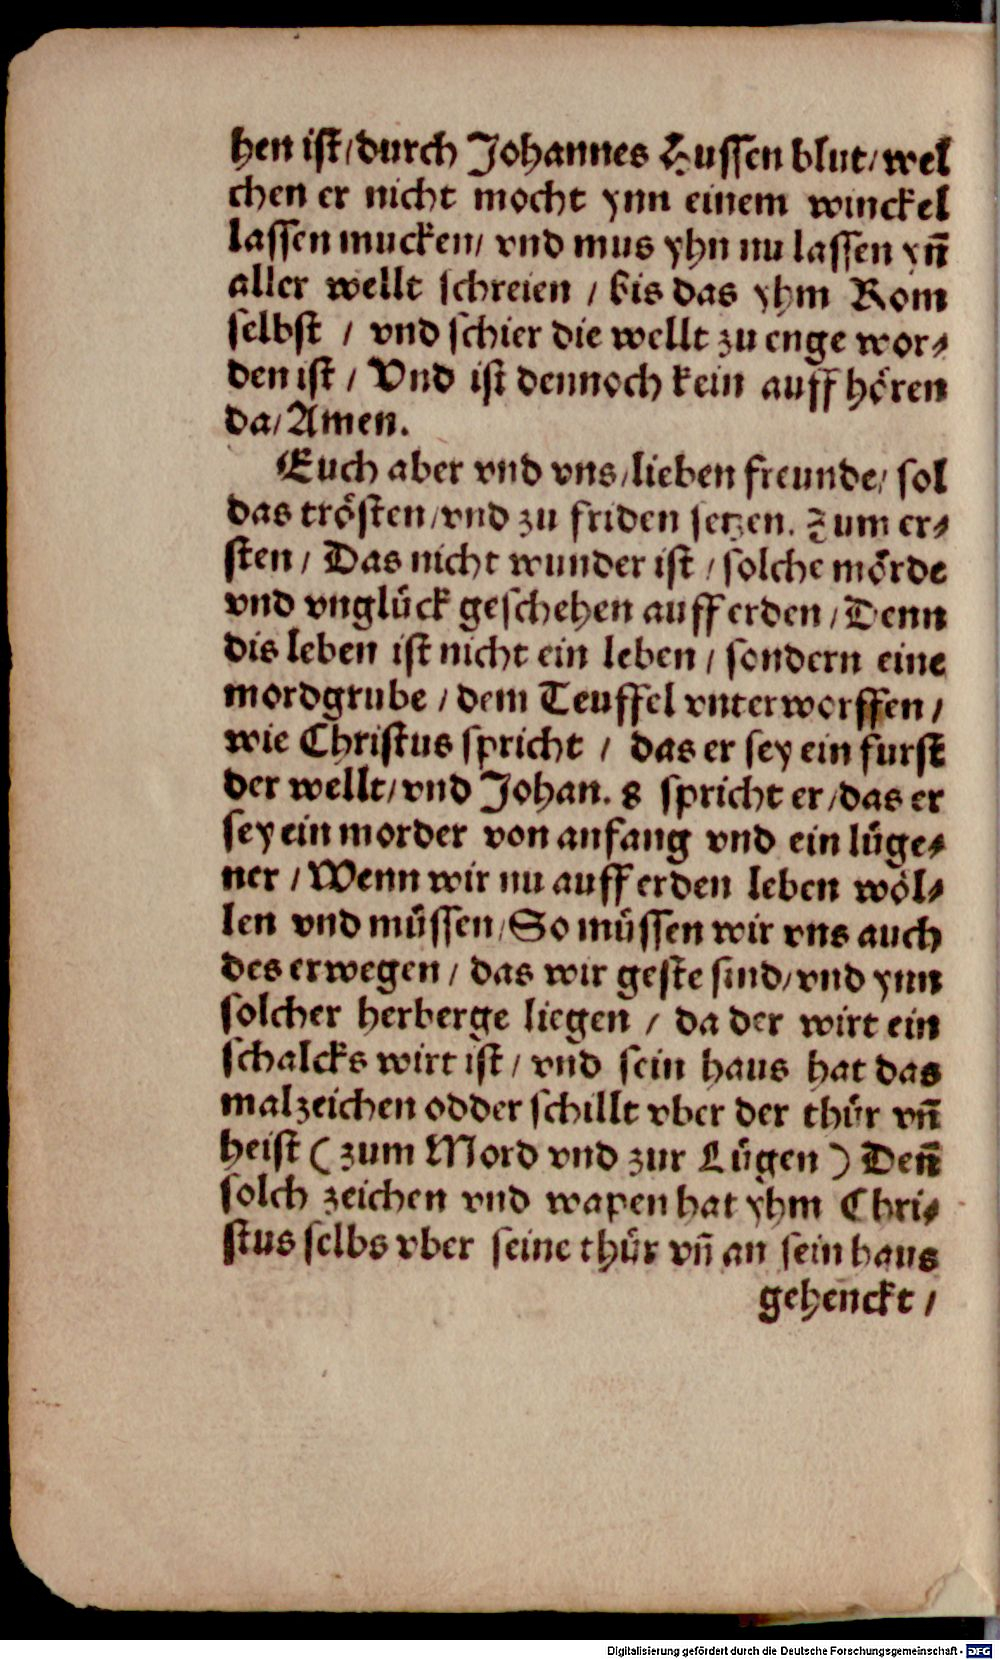 hen ist/durch Johannes Hussen blut/wel
chen er nicht mocht ynn einem winckel
lassen mucken/ vnd mus yhn nu lassen yñ
aller wellt schreien / bis das yhm Rom
selbst / vnd schier die wellt zu enge wor⸗
den ist / Vnd ist dennoch kein auff hören
da/Amen.
Euch aber vnd vns/lieben freunde/ sol
das trösten/vnd zu friden setzen. Zum er⸗
sten / Das nicht wunder ist / solche mörde
vnd vnglück geschehen auff erden / Denn
dis leben ist nicht ein leben / sondern eine
mordgrube / dem Teuffel vnterworffen /
wie Christus spricht / das er sey ein furst
der wellt/vnd Johan. 8 spricht er/das er
sey ein morder von anfang vnd ein lüge⸗
ner / Wenn wir nu auff erden leben wöl⸗
len vnd müssen/So müssen wir vns auch
des erwegen / das wir geste sind/vnd ynn
solcher herberge liegen / da der wirt ein
schalcks wirt ist / vnd sein haus hat das
malzeichen odder schillt vber der thür vñ
heist ( zum Mord vnd zur Lügen ) Deñ
solch zeichen vnd wapen hat yhm Chri⸗
stus selbs vber seine thür vñ an sein haus
gehenckt /
Digitalisierung gefördert durch die Deutsche Forschungsgemeinschaft - DFG